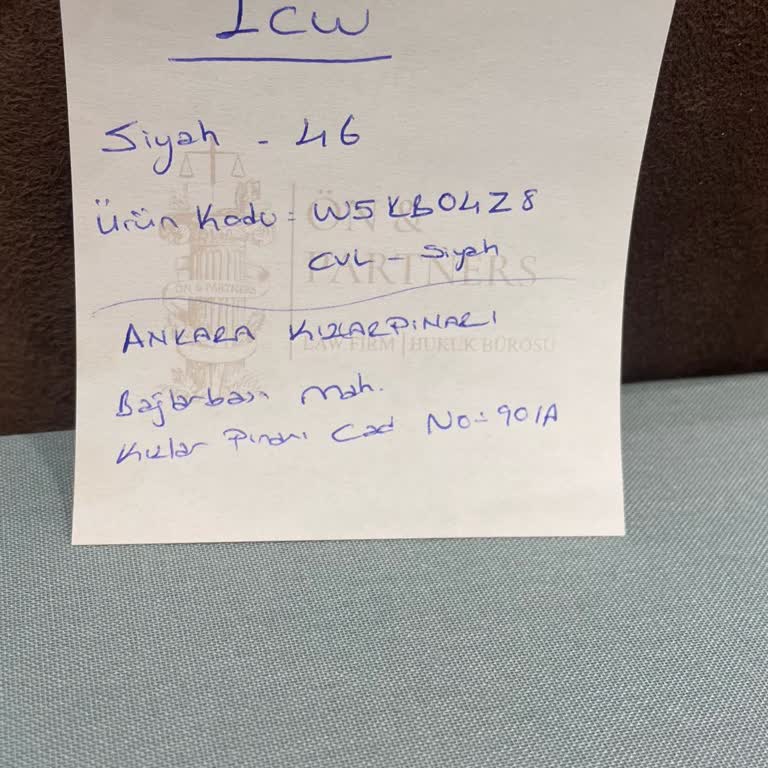 LCW
Siyah - 46
Ürün Kodu = W5KB04Z8
CVL - Siyah
ANKARA KIZLARPINARI
Bağlarbaşı Mah.
Kızlar Pınarı Cad No:- 90/A
ÖN &
PARTNERS
LAW FIRM | HUKUK BÜROSU
ÖN & PARTNERS